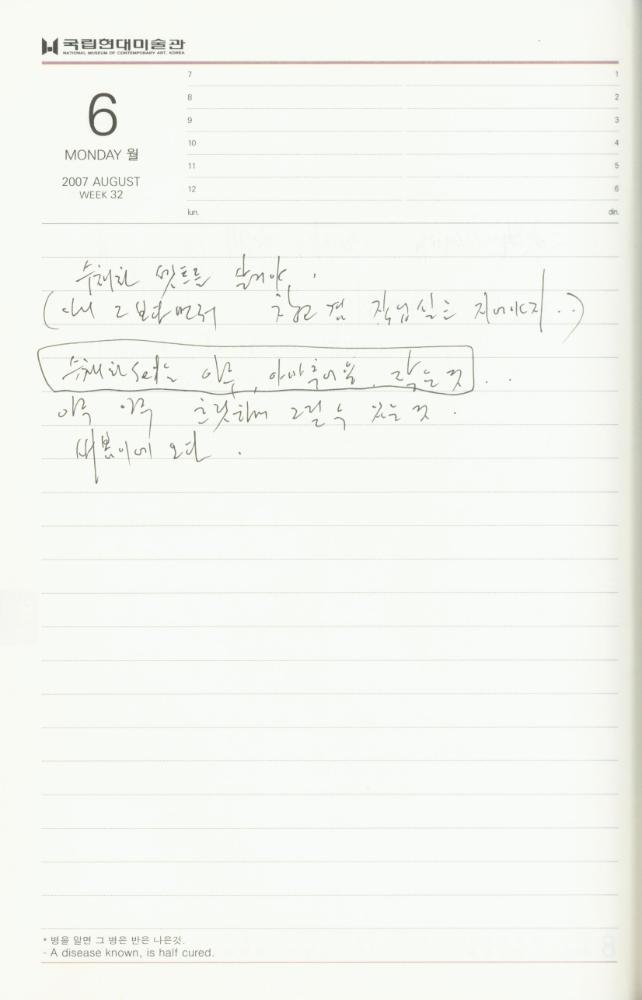 국립현대미술관
NATIONAL MUSEUM OF CONTEMPORARY ART, KOREA
6
MONDAY 월
2007 AUGUST
WEEK 32
7 1
8 2
9 3
10 4
11 5
12 6
lun. din.
수채화 셋트를 .
(아니 그 보다 먼저 창고 겸 작업실을 지어야지..)
수채화 set는 아주, 아마추어용, 작은 것 ..
아주 아주 그릴 수 있는 것.
오다.
* 병을 알면 그 병은 반은 나은것.
- A disease known, is half cured.